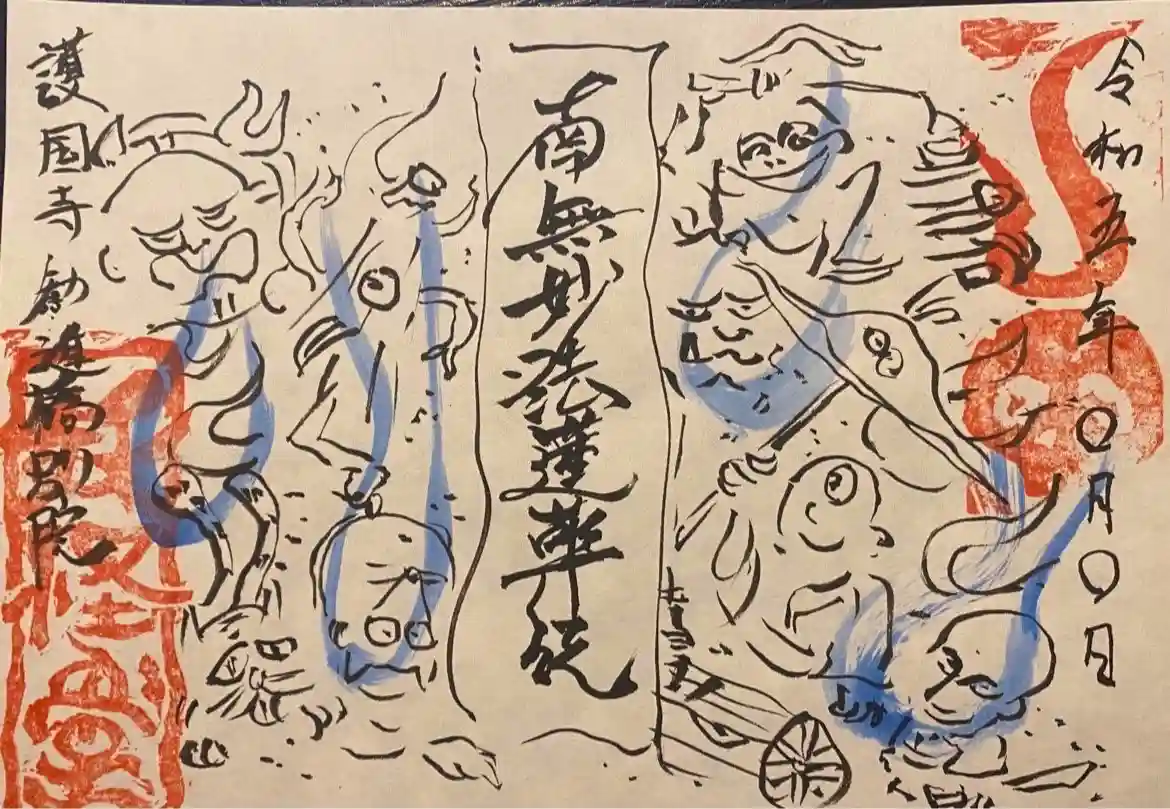 令和五年〇月〇日
南無妙法蓮華経
護国寺勧進橋別院